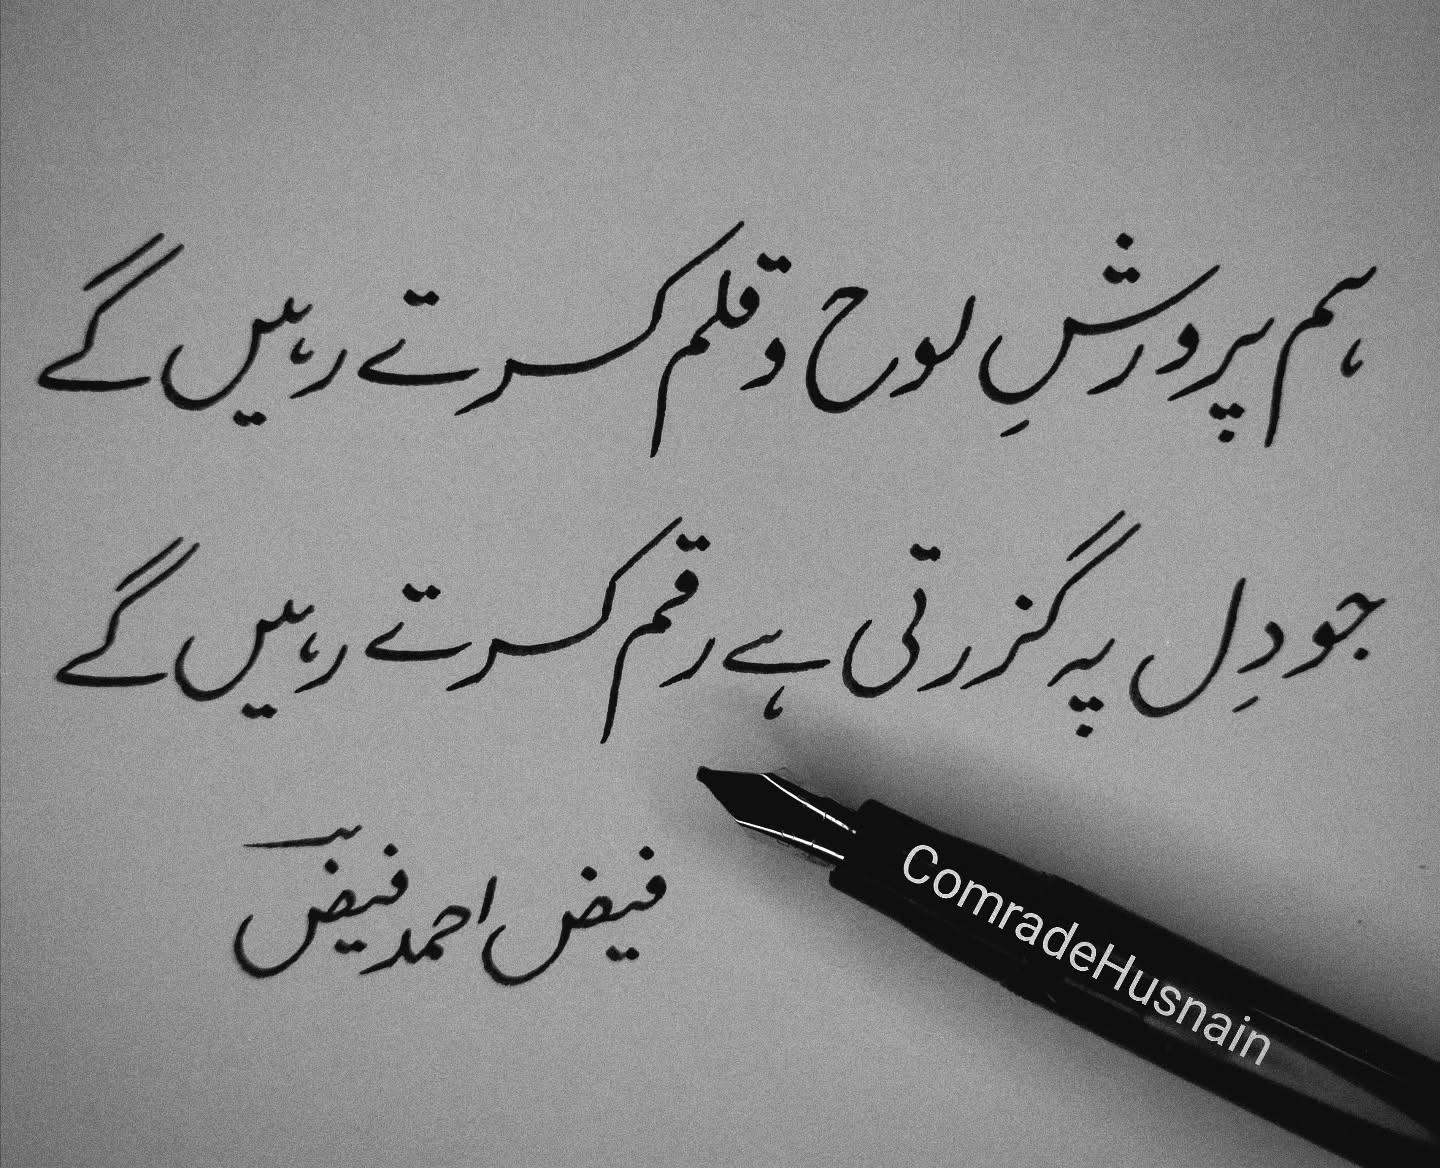 ہم پرورشِ لوح و قلم کرتے رہیں گے
جو دِل پہ گزرتی ہے رقم کرتے رہیں گے
فیض احمد فیضؔ
ComradeHusnain